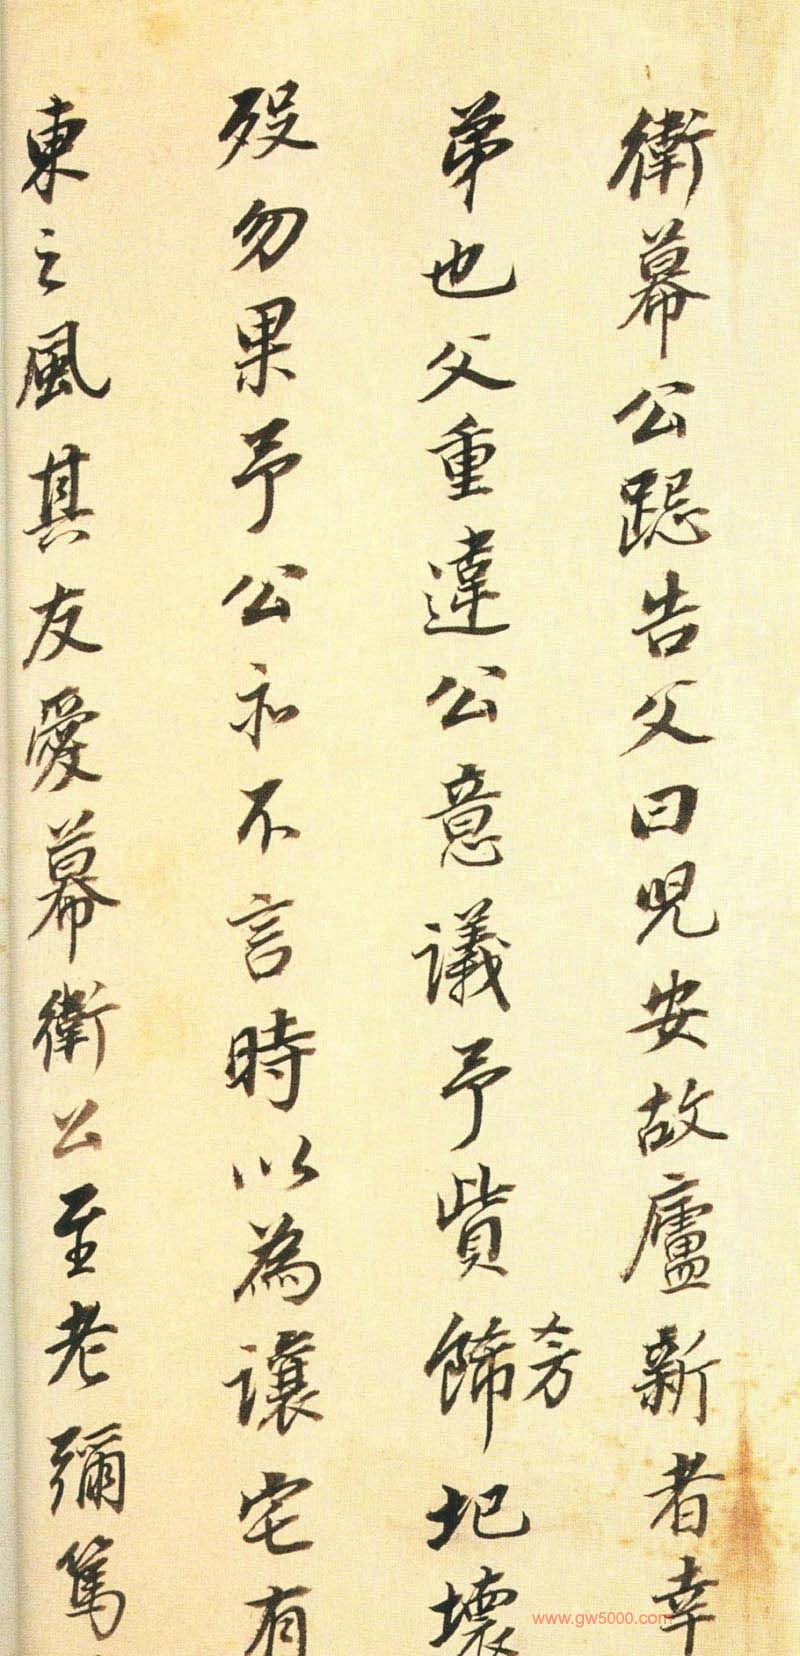 衛幕公跽告父曰兒安故廬新者幸
弟也父重違公意議予貲飾圮壞
旁
歿勿果予公亦不言時以為讓宅有
東之風其友愛幕衛公至老彌篤
www.gw5000.com